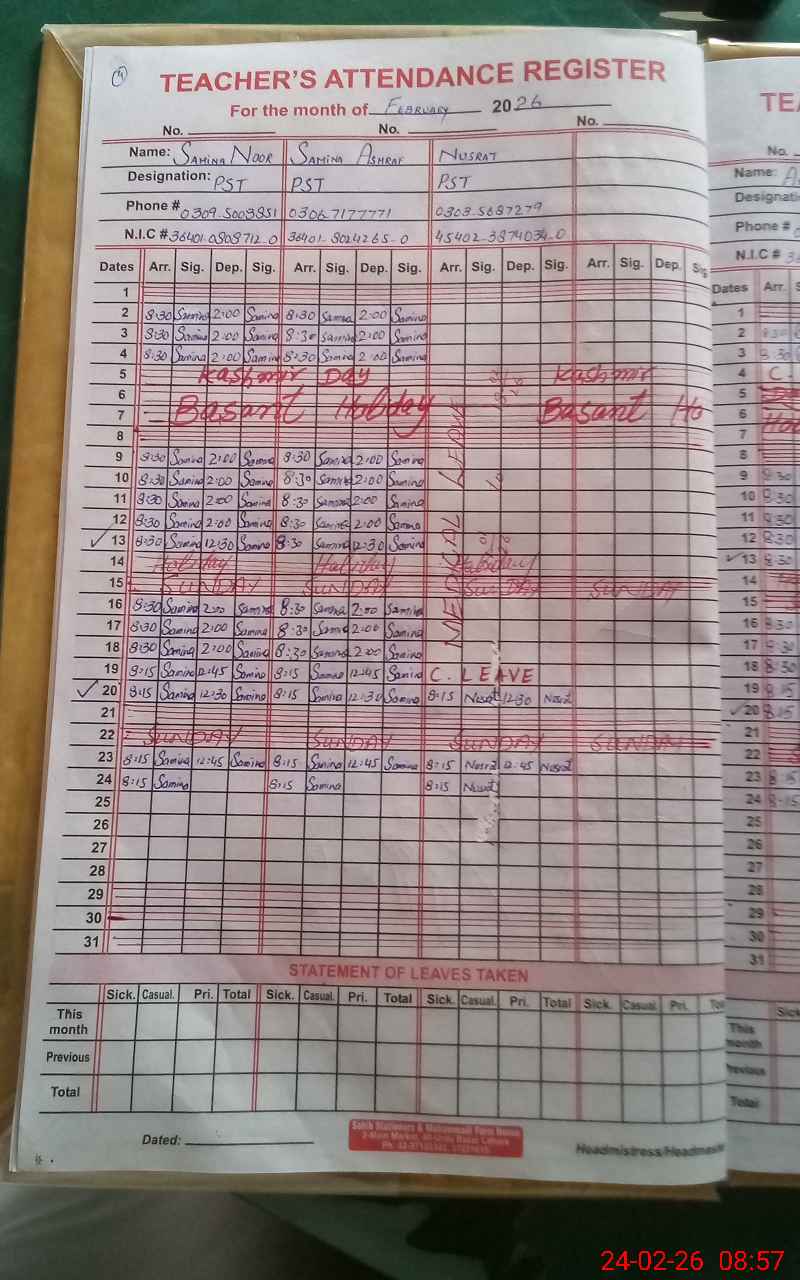 4
TEACHER'S ATTENDANCE REGISTER
For the month of FEBRUARY 2026
No. No. No.
Name: SAMINA NOOR SAMINA ASHRAF NUSRAT
Designation: PST PST PST
Phone # 0309-5003851 0306-7177771 0303-5687279
N.I.C # 36401-0808712-0 36401-8024265-0 45402-3874034-0
Dates Arr. Sig. Dep. Sig. Arr. Sig. Dep. Sig. Arr. Sig. Dep. Sig. Arr. Sig. Dep. Sig
1
2 8:30 Samina 2:00 Samina 8:30 Samina 2:00 Samina
3 8:30 Samina 2:00 Samina 8:30 Samina 2:00 Samina
4 8:30 Samina 2:00 Samina 8:30 Samina 2:00 Samina
5 Kashmir Day Kashmir
6
7 Basant Holiday Basant Ho
8
9 8:30 Samina 2:00 Samina 8:30 Samina 2:00 Samina
10 8:30 Samina 2:00 Samina 8:30 Samina 2:00 Samina
11 8:30 Samina 2:00 Samina 8:30 Samina 2:00 Samina
12 8:30 Samina 2:00 Samina 8:30 Samina 2:00 Samina
13 8:30 Samina 12:30 Samina 8:30 Samina 12:30 Samina
MEDICAL LEAVE
14 Holiday Holiday Holiday
15 SUNDAY SUNDAY SUNDAY SUNDAY
16 8:30 Samina 2:00 Samina 8:30 Samina 2:00 Samina
17 8:30 Samina 2:00 Samina 8:30 Samina 2:00 Samina
18 8:30 Samina 2:00 Samina 8:30 Samina 2:00 Samina
19 8:15 Samina 12:45 Samina 8:15 Samina 12:45 Samina C. LEAVE
20 8:15 Samina 12:30 Samina 8:15 Samina 12:30 Samina 8:15 Nusrat 12:30 Nusrat
21
22 SUNDAY SUNDAY SUNDAY SUNDAY
23 8:15 Samina 12:45 Samina 8:15 Samina 12:45 Samina 8:15 Nusrat 12:45 Nusrat
24 8:15 Samina 8:15 Samina 8:15 Nusrat
25
26
27
28
29
30
31
STATEMENT OF LEAVES TAKEN
Sick. Casual. Pri. Total Sick. Casual. Pri. Total Sick. Casual. Pri. Total Sick. Casual. Pri.
This month
Previous
Total
Dated:
Sahib Stationers & Muhammadi Form House
2-Main Market, 40-Urdu Bazar Lahore
Headmistress/Headmas
No.
Name:
Designati
Phone #
N.I.C #
Dates Arr.
1
2 8:30
3 8:30
4 C.
5
6
7
8
9 8:30
10 8:30
11 8:30
12 8:30
13 8:30
14
15
16 8:30
17 8:30
18 8:30
19 8:15
20 8:15
21
22
23 8:15
24 8:15
25
26
27
28
29
30
31
Sick
This month
Previous
Total
24-02-26 08:57